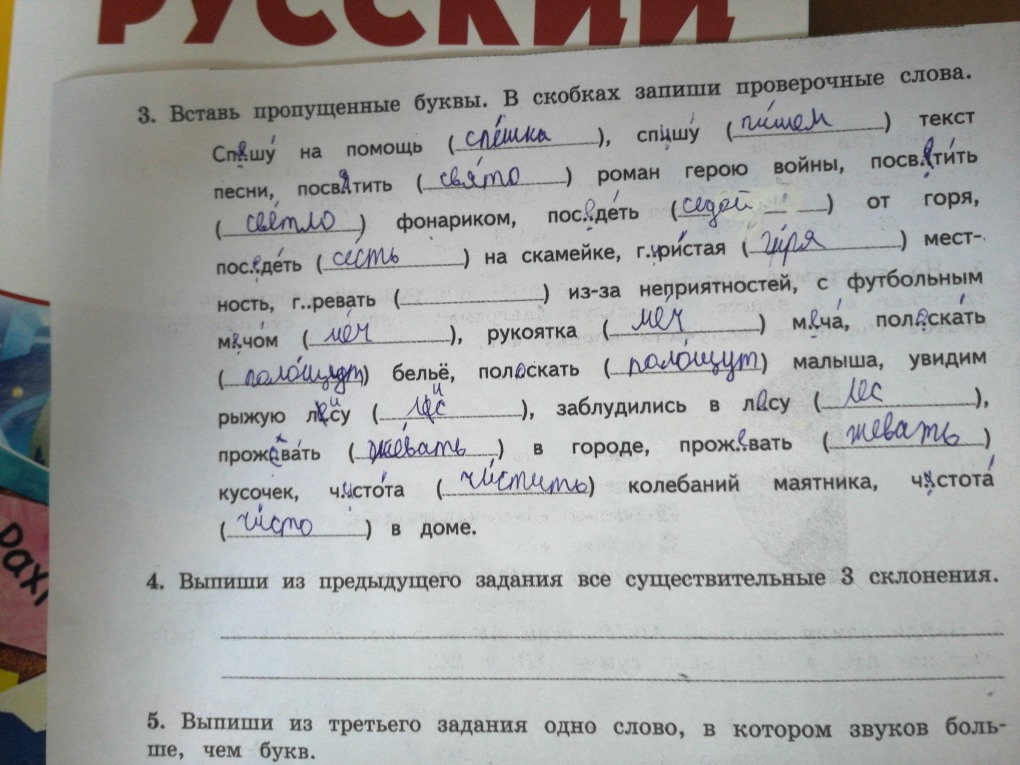 РУССКИЙ
3. Вставь пропущенные буквы. В скобках запиши проверочные слова.
Спешу́ на помощь (спе́шка), спишу́ (пи́шем) текст
песни, посвятить (свя́то) роман герою войны, посвети́ть
(све́тло) фонариком, поседе́ть (седой) от горя,
посиде́ть (сесть) на скамейке, г..ри́стая мест-
ность, г..ревать (        ) из-за неприятностей, с футбольным
мечо́м (ме́ч), рукоятка (ме́ч) меча́, поласкать
(поло́щут) бельё, поласкать (полощут) малыша, увидим
рыжую лису (лис), заблудились в лесу (лес),
прожева́ть (жевать) в городе, прожевать (жевать)
кусочек, чисто́та (чи́стить) колебаний маятника, чистота́
(чи́сто) в доме.
4. Выпиши из предыдущего задания все существительные 3 склонения.
5. Выпиши из третьего задания одно слово, в котором звуков боль-
ше, чем букв.
рах